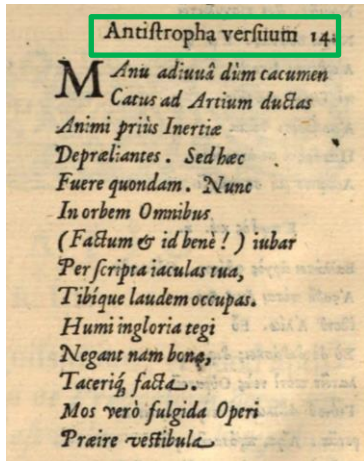 Antiſtropha verſuum 14.
MAnu adiuuâ dùm cacumen
Catus ad Artium ductas
Animi priùs Inertiæ
Depræliantes. Sed hæc
Fuere quondam. Nunc
In orbem Omnibus
(Factum & id benè!) iubar
Per ſcripta iaculas tua,
Tibíque laudem occupas.
Humi ingloria tegi
Negant nam bona,
Taceriq́; facta.
Mos verò fulgida Operi
Præire veſtibula